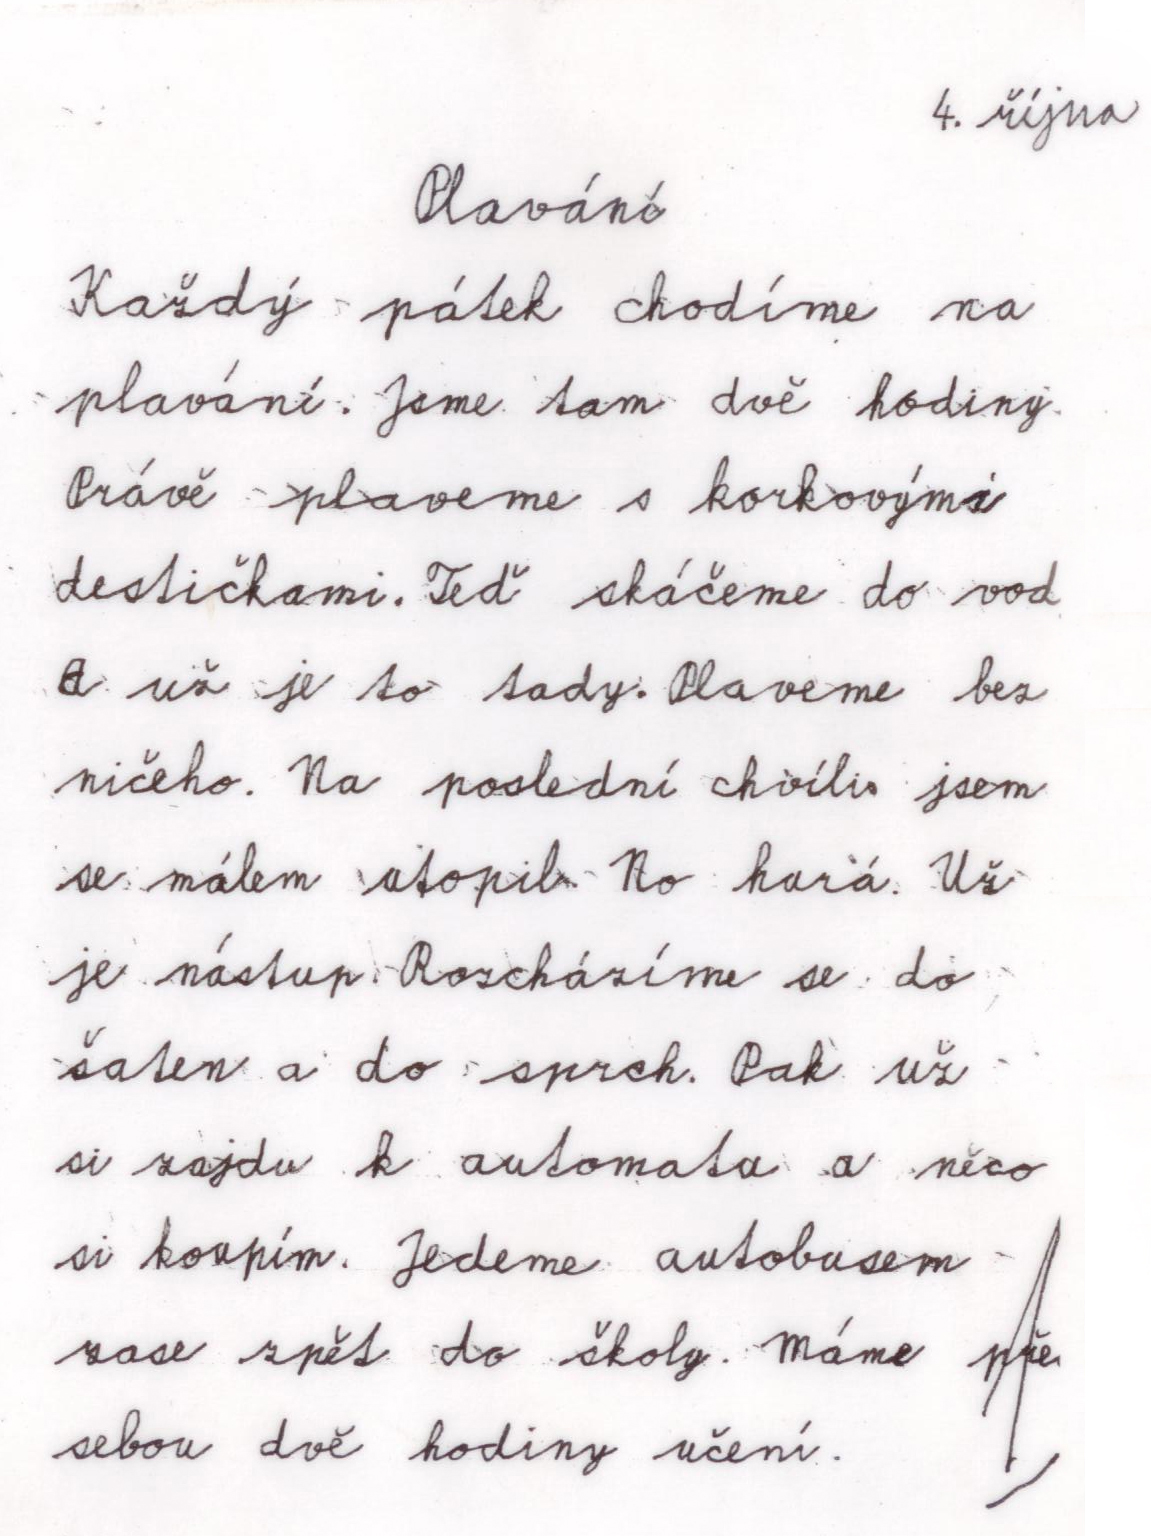 4. října
Plavání
Každý pátek chodíme na
plavání. Jsme tam dvě hodiny.
Právě plaveme s korkovými
destičkami. Teď skáčeme do vod
A už je to tady. Plaveme bez
ničeho. Na poslední chvíli jsem
se málem utopil. No hurá. Už
je nástup. Rozcházíme se do
šaten a do sprch. Pak už
si zajdu k automatu a něco
si koupím. Jedeme autobusem
zase zpět do školy. Máme pře
sebou dvě hodiny učení.